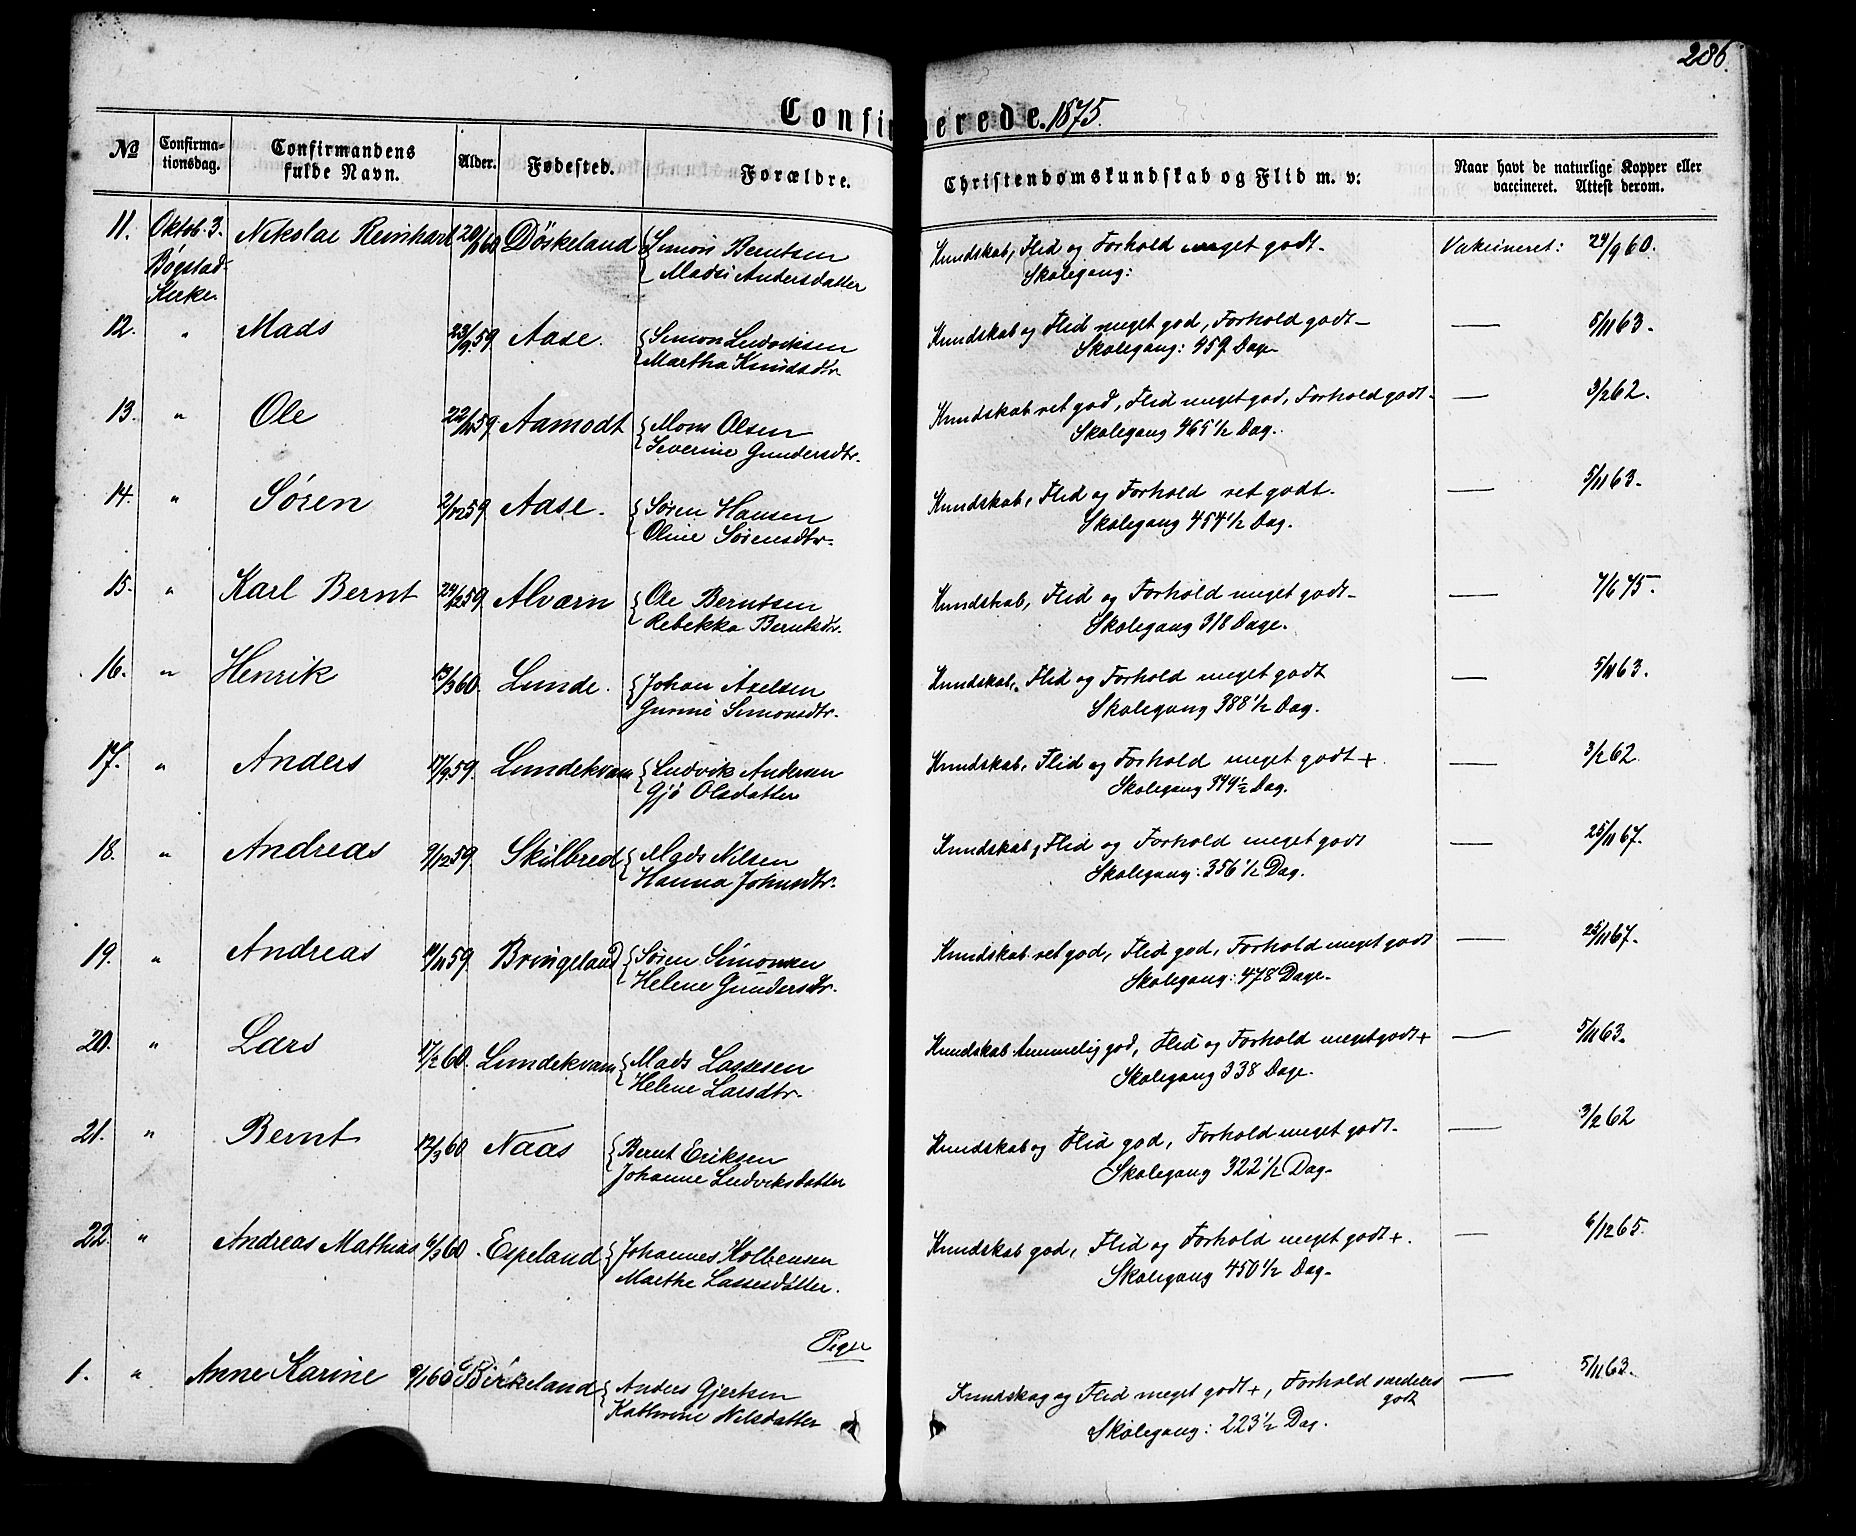 286.
Confirmerede. 1875.
No Confirmationsdag. Confirmandens fulde Navn. Alder. Fødested. Forældre. Christendomskundskab og Flid m. v: Naar havt de naturlige Kopper eller vaccineret. Attest derom.
11. Oktob. 3. Nikolai Reinhart 60 Döskeland Simon Berntsen Kundskab, Flid og Forhold meget godt. Vakcineret: 24/9 60.
Bögstad Kirke Madsi Andersdatter Skolegang:
12. " Mads 23/9 59 Aase. Simon Ludviksen Kundskab og Flid meget god, Forhold godt — 5/11 63.
Martha Knudsdtr. Skolegang: 459 Dage
13. " Ole 22/11 59 Aamodt Mons Olsen Kundskab ret god, Flid meget god, Forhold godt. — 3/2 62.
Severine Gundersdtr. Skolegang 465 1/2 Dag.
14. " Sören 2/12 59 Aase. Sören Hansen Kundskab, Flid og Forhold ret godt. — 5/11 63.
Oline Sörensdtr. Skolegang 454 1/2 Dag.
15. " Karl Bernt 24/12 59 Alværn Ole Berntsen Kundskab, Flid og Forhold meget godt — 7/6 75.
Rebekka Berntsdtr. Skolegang 318 Dage.
16. " Henrik 13/3 60. Lunde. Johan Axelsen Kundskab, Flid og Forhold meget godt — 5/11 63.
Gurine Simonsdtr. Skolegang 388 1/2 Dag.
17. " Anders 17/9 59. Lundekvam Ludvik Andersen Kundskab, Flid og Forhold meget godt +. — 3/2 62.
Gjö Olsdatter Skolegang 1/2 Dag.
18. " Andreas 9/12 59. Skilbred Mads Nilsen Kundskab, Flid og Forhold meget godt — 25/11 67.
Hanna Johnsdtr. Skolegang: 356 1/2 Dag.
19. " Andreas 11/11 59 Bringeland Sören Simonsen Kundskab ret god, Flid god, Forhold meget godt — 25/11 67.
Helene Gundersdtr. Skolegang: 478 Dage.
20. " Lars 17/2 60. Lundekvam Mads Lassesen Kundskab temmelig god, Flid og Forhold meget godt + — 5/11 63.
Helene Larsdtr. Skolegang 338 Dage.
21. " Bernt 12/3 60 Naas Bernt Eriksen Kundskab og Flid god, Forhold meget godt. — 3/2 62
Johanne Ludviksdatter Skolegang 322 1/2 Dag.
22. " Andreas Mathias 6/3 60. Espeland Johannes Kolbensen Kundskab god, Flid og Forhold meget godt +. — 6/12 65.
Marthe Lassesdatter. Skolegang 450 1/2 Dag.
Piger
1. " Anne Karine 9/1 60 Birkeland Anders Gjertsen Kundskag og Flid meget godt +, Forhold særdeles godt — 5/11 63.
Kathrine Nilsdatter Skolegang: 223 1/2 Dag.